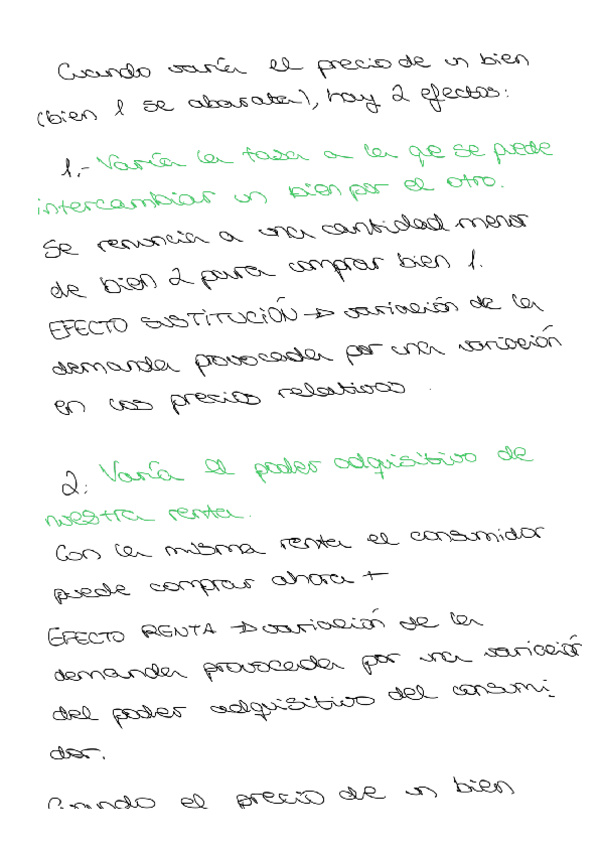 Cuando varía el precio de un bien
(bien 1 se abarata), hay 2 efectos:
1.- Varía la tasa a la que se puede
intercambiar un bien por el otro.
Se renuncia a una cantidad menor
de bien 2 para comprar bien 1.
EFECTO SUSTITUCIÓN → variación de la
demanda provocada por una variación
en los precios relativos.
2. Varía el poder adquisitivo de
nuestra renta.
Con la misma renta el consumidor
puede comprar ahora +
EFECTO RENTA → variación de la
demanda provocada por una variación
del poder adquisitivo del consumi
dor.
Cuando el precio de un bien